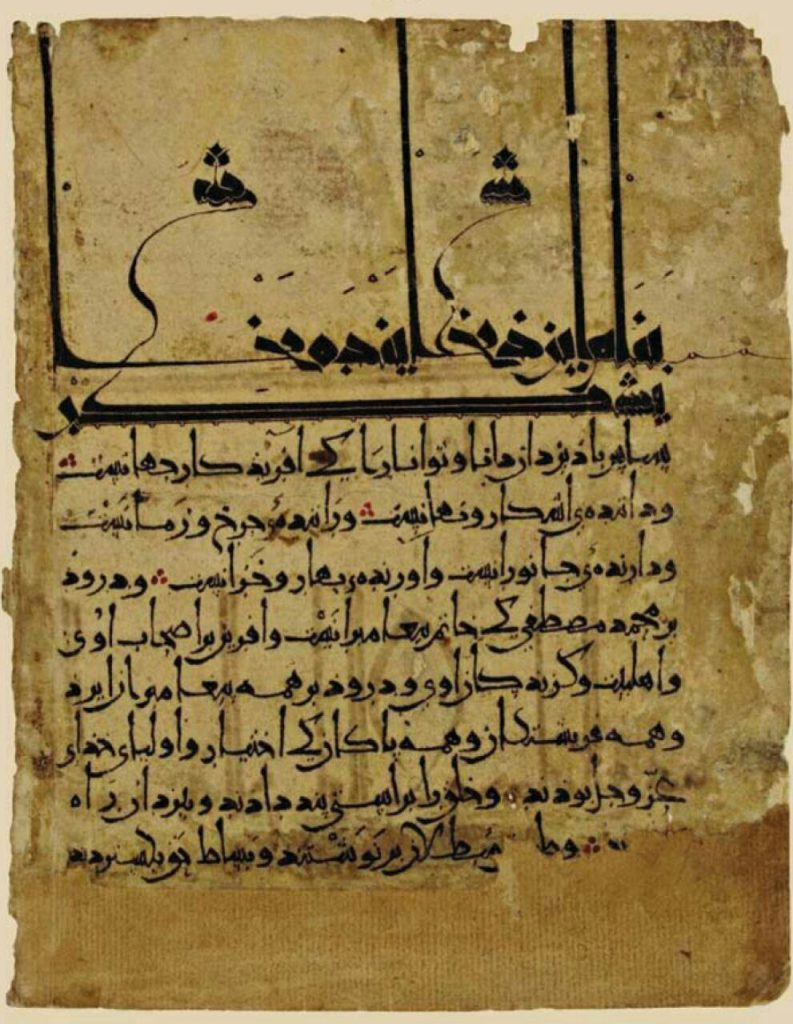 بنام ایزد بخشاینده بخشا
یشگر
سپاس باد یزدان دانا و توانا را کی آفریدکار جهانست
و داننده‌ی آشکار و نهانست و راننده‌ی چرخ و زمانست
و دارنده‌ی جانورانست و آورنده‌ی بهار و خزانست و درود
بر محمد مصطفی کی خاتم پیغامبرانست و آفرین بر اصحاب اوی
و اهلبیت و کزیدکان اوی و درود بر همه پیغامبران ایزد
و همه فریشتکان و همه پاکان کی اختیار و اولیای خدای
عزّ و جل بودند و خلق را براستی پند دادند و بیزدان راه
بر نوشتند و بساط حق بکستردند